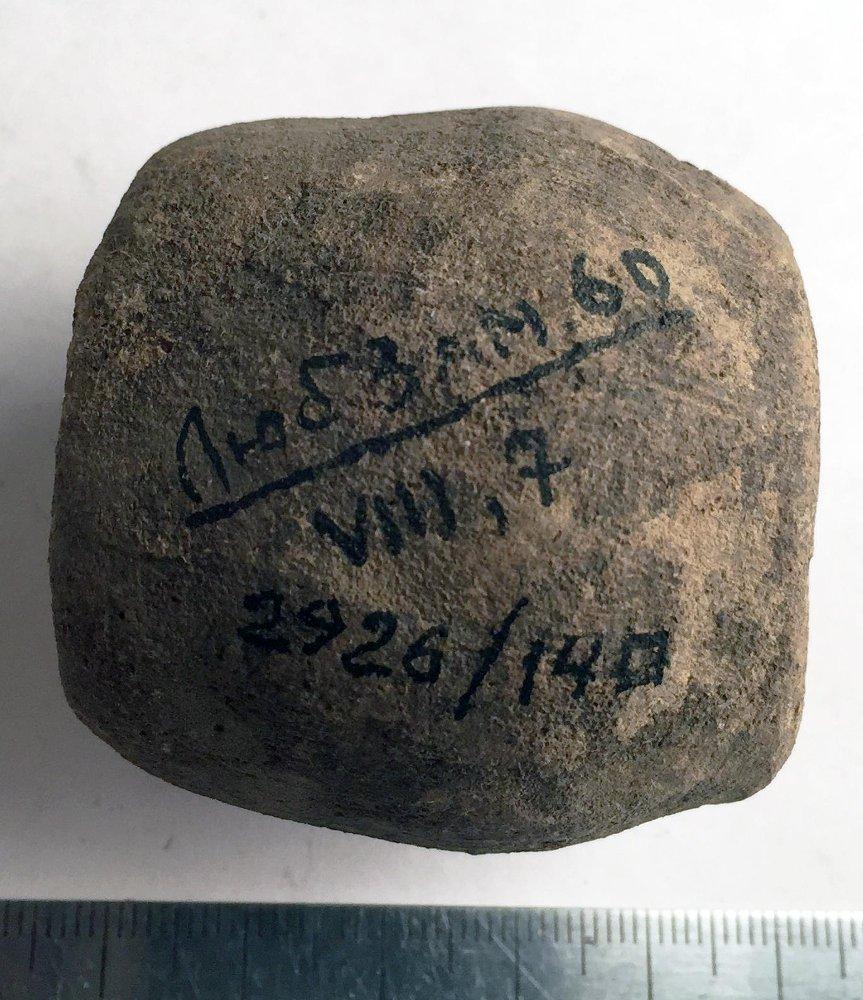 Люб Зам. 60
VIII, 7
2926/140